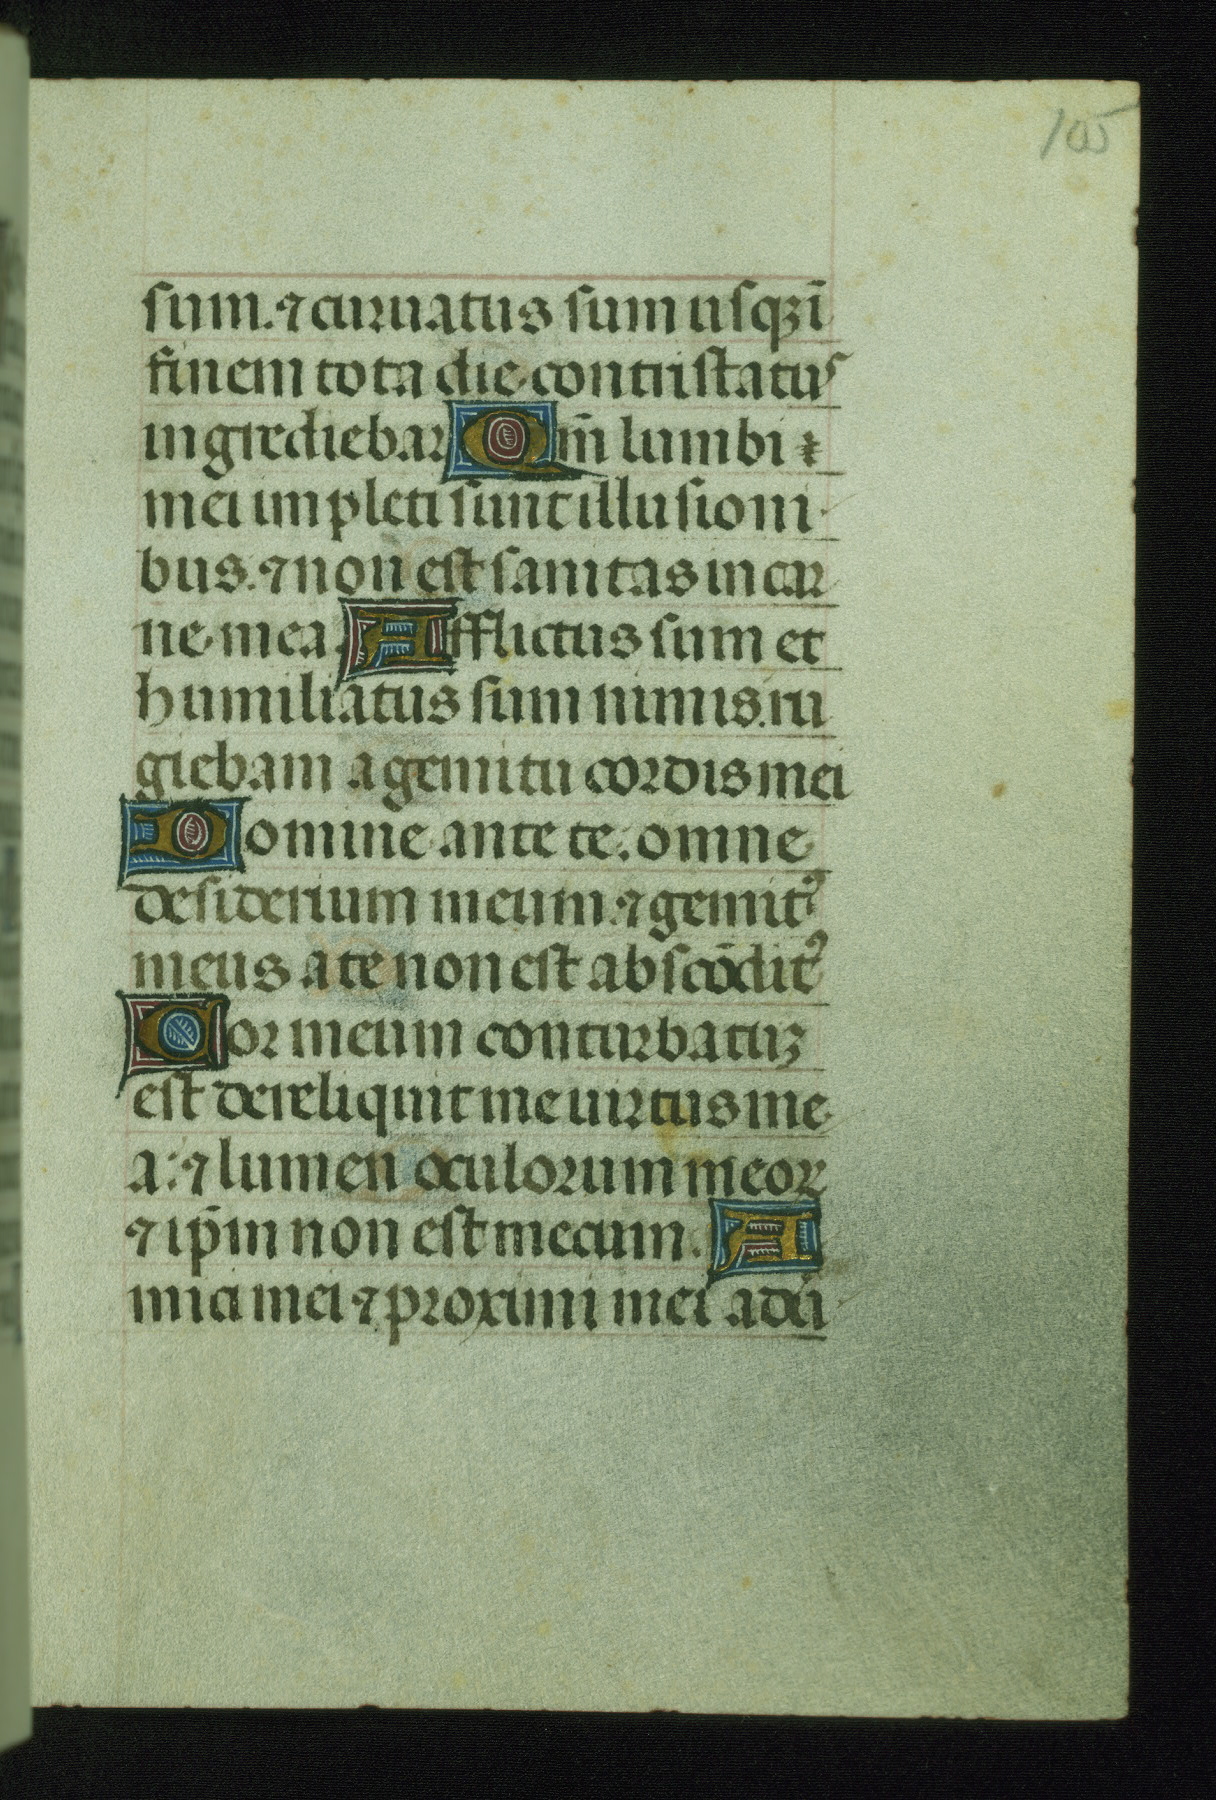 105
sum. ⁊ curuatus sum usqꝫ ī
finem tota die contristatus
ingrediebar Qm̄ lumbi
mei impleti sunt illusioni
bus. ⁊ non est sanitas in car
ne mea. Afflictus sum et
humiliatus sum nimis. ru
giebam a gemitu cordis mei
Domine ante te. omne
desiderium meum. ⁊ gemitꝰ
meus a te non est abscōditꝰ
Cor meum conturbatuꝫ
est dereliquit me uirtus me
a: ⁊ lumen oculorum meoꝝ
⁊ ip̄m non est mecum. A
mici mei ⁊ proximi mei adū